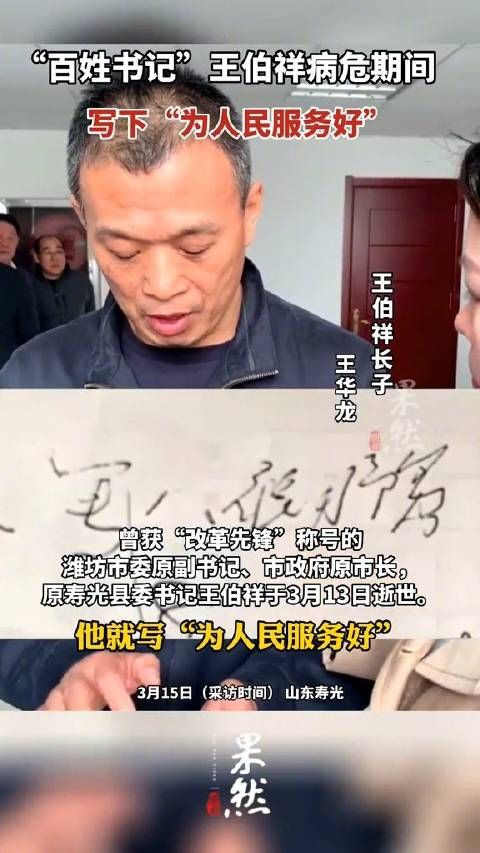 “百姓书记”王伯祥病危期间
写下“为人民服务好”
王伯祥长子
王华龙
果然
曾获“改革先锋”称号的
潍坊市委原副书记、市政府原市长，
原寿光县委书记王伯祥于3月13日逝世。
他就写“为人民服务好”
3月15日（采访时间） 山东寿光
果然